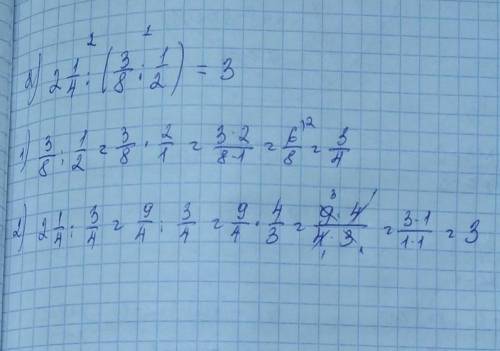 2) 2 1/4 : (3/8 : 1/2) = 3
1) 3/8 : 1/2 = 3/8 · 2/1 = 3·2/8·1 = 6/8 = 3/4
2) 2 1/4 : 3/4 = 9/4 : 3/4 = 9/4 · 4/3 = 9·4/4·3 = 3·1/1·1 = 3